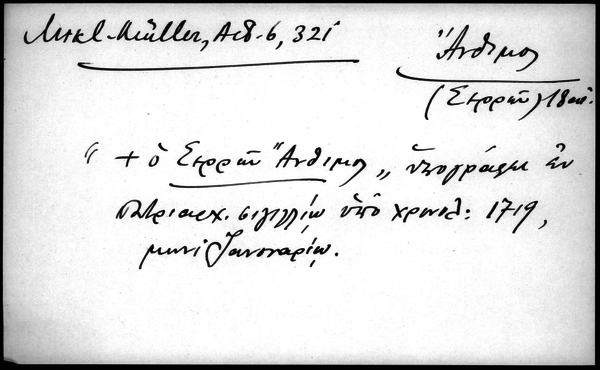 Mikl-Müller, Act. 6, 321
Ἄνθιμος
(Σερρῶν) 18 αἰ.
" + ὁ Σερρῶν Ἄνθιμος ,, ὑπογράφει ἐν
πατριαρχ. σιγιλλίῳ ὑπὸ χρονολ: 1719,
μηνὶ Ἰαννουαρίῳ.